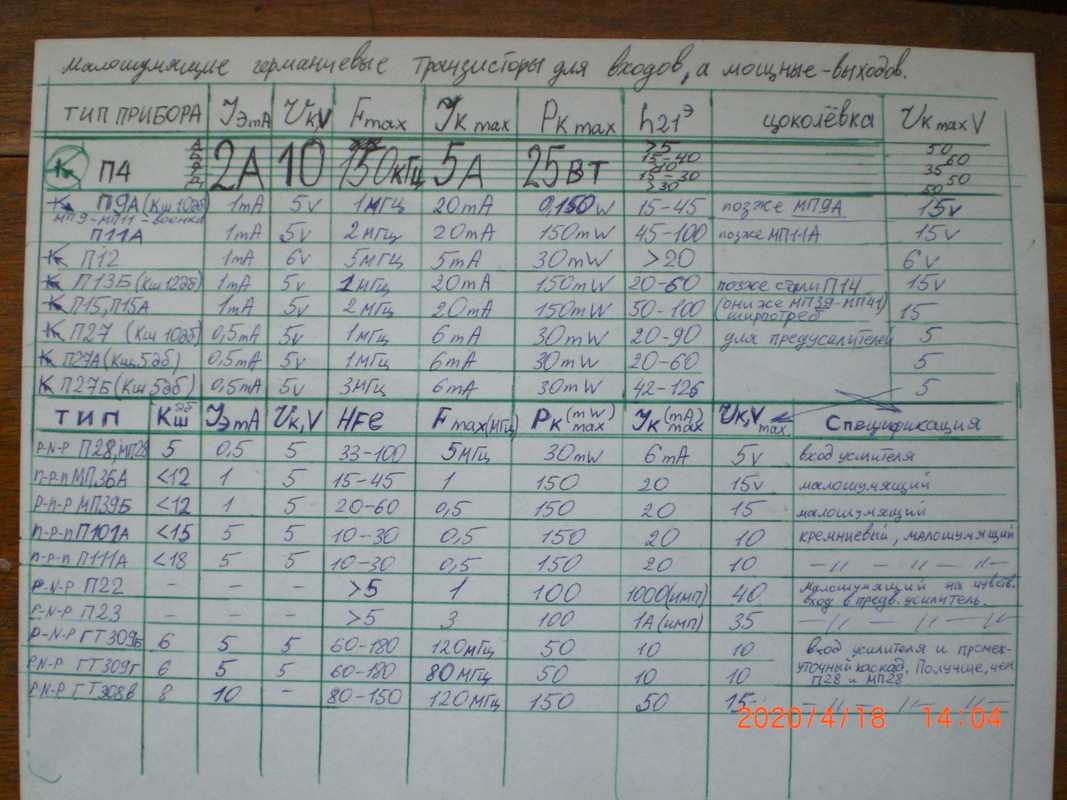 малошумящие германиевые транзисторы для входов, а мощные-выходов.
ТИП ПРИБОРА Iэ mA Uк,V Fmax Iк max Pк max h21э цоколёвка Uк max V
П4 А Б В Г Д 2А 10 150кГц 5А 25Вт >5 15-40 >10 15-30 >30 50 60 35 50 50
К П9А (Кш 10дб) 1mA 5v 1мГц 20mA 0,150W 15-45 позже МП9А 15v
МП9-МП11-военка
П11А 1mA 5v 2мГц 20mA 150mW 45-100 позже МП11А 15v
К П12 1mA 6v 5мГц 5mA 30mW >20 6v
К П13Б (Кш 12дб) 1mA 5v 1мГц 20mA 150mW 20-60 позже стали П14 15v
К П15, П15А 1mA 5v 2мГц 20mA 150mW 50-100 (они же МП39-МП41) ширпотреб 15
К П27 (Кш 10дб) 0,5mA 5v 1мГц 6mA 30mW 20-90 для предусилителей 5
К П27А (Кш 5дб) 0,5mA 5v 1мГц 6mA 30mW 20-60 5
К П27Б (Кш 5дб) 0,5mA 5v 3мГц 6mA 30mW 42-126 5
ТИП Кш дб Iэ mA Uк,V HFE Fmax(мГц) Pк(mW) max Iк(mA) max Uк,V max. Спецификация
P-N-P П28, МП28 5 0,5 5 33-100 5мГц 30mW 6mA 5v вход усилителя
n-p-n МП36А <12 1 5 15-45 1 150 20 15v малошумящий
p-n-p МП39Б <12 1 5 20-60 0,5 150 20 15 малошумящий
n-p-n П101А <15 5 5 10-30 0,5 150 20 10 кремниевый, малошумящий
n-p-n П111А <18 5 5 10-30 0,5 150 20 10 —〃—〃—〃—
P-N-P П22 – – – >5 1 100 1000(имп) 40 малошумящий на чувств. вход в предв. усилитель.
P-N-P П23 – – – >5 3 100 1А(имп) 35 —〃—〃—〃—
P-N-P ГТ309Б 6 5 5 60-180 120мГц 50 10 10 вход усилителя и промеж-
P-N-P ГТ309Г 6 5 5 60-180 80мГц 50 10 10 уточный каскад. Получше, чем П28 и МП28
P-N-P ГТ308В 8 10 – 80-150 120мГц 150 50 15 —〃—〃—〃—
2020/4/18 14:04